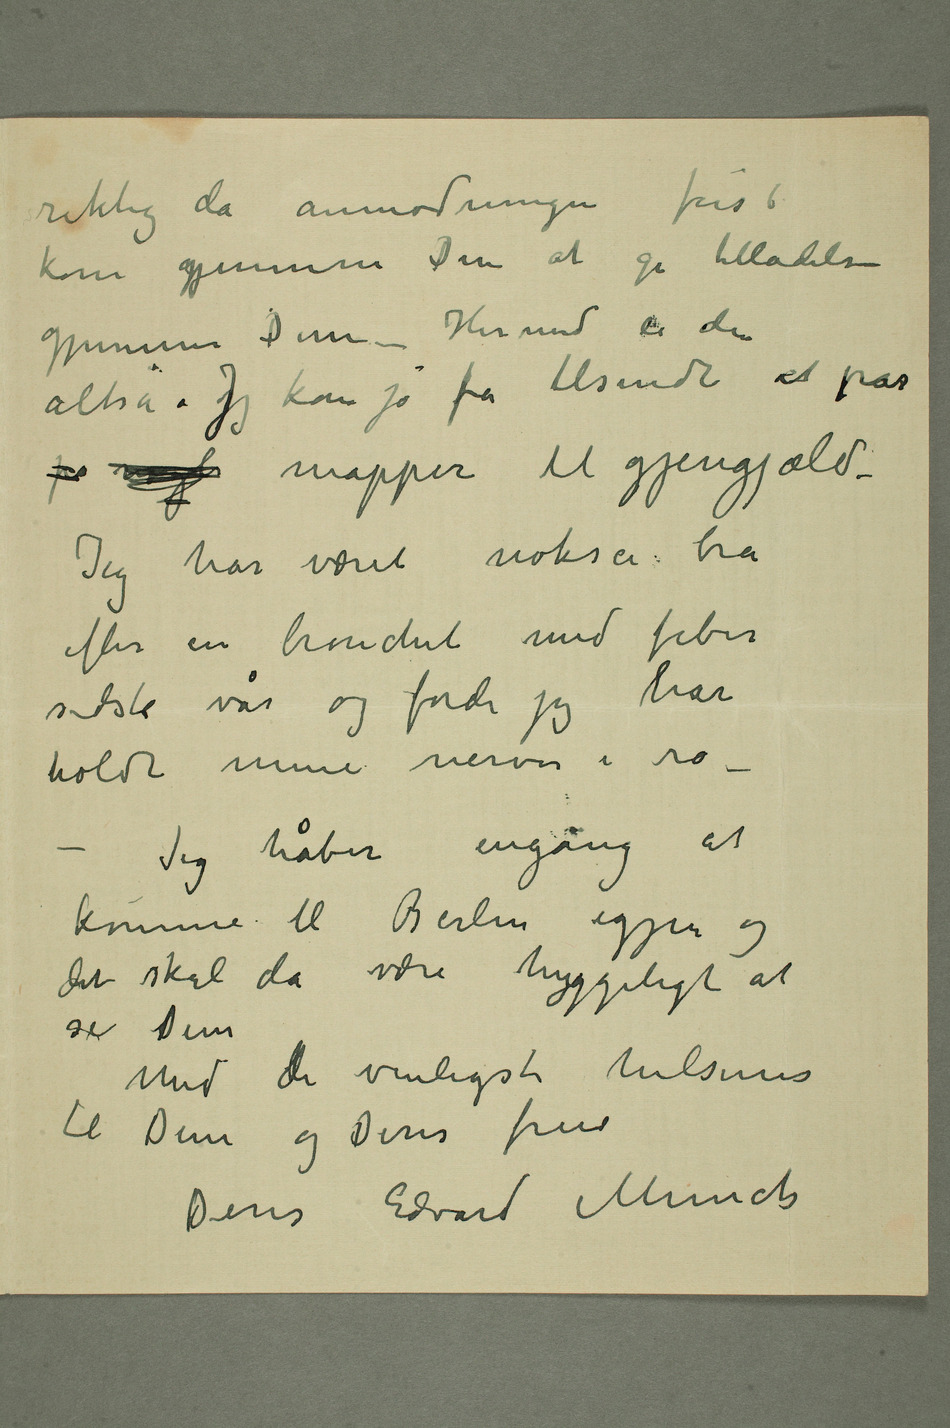 riktig da anmodningen først
kom gjennem Dem at gi tilladelsen
gjennem Dem – Hermed er den
altså. Jeg kan jo få tilsendt et par
mapper til gjengjæld –
Jeg har været noksa bra
efter en bronchit med feber
sidste vår og fordi jeg har
holdt mine nerver i ro –
– Jeg håber engång at
komme til Berlin igjen og
det skal da være hyggeligt at
se Dem
Med de venligste hilsener
til Dem og Deres frue
Deres Edvard Munch